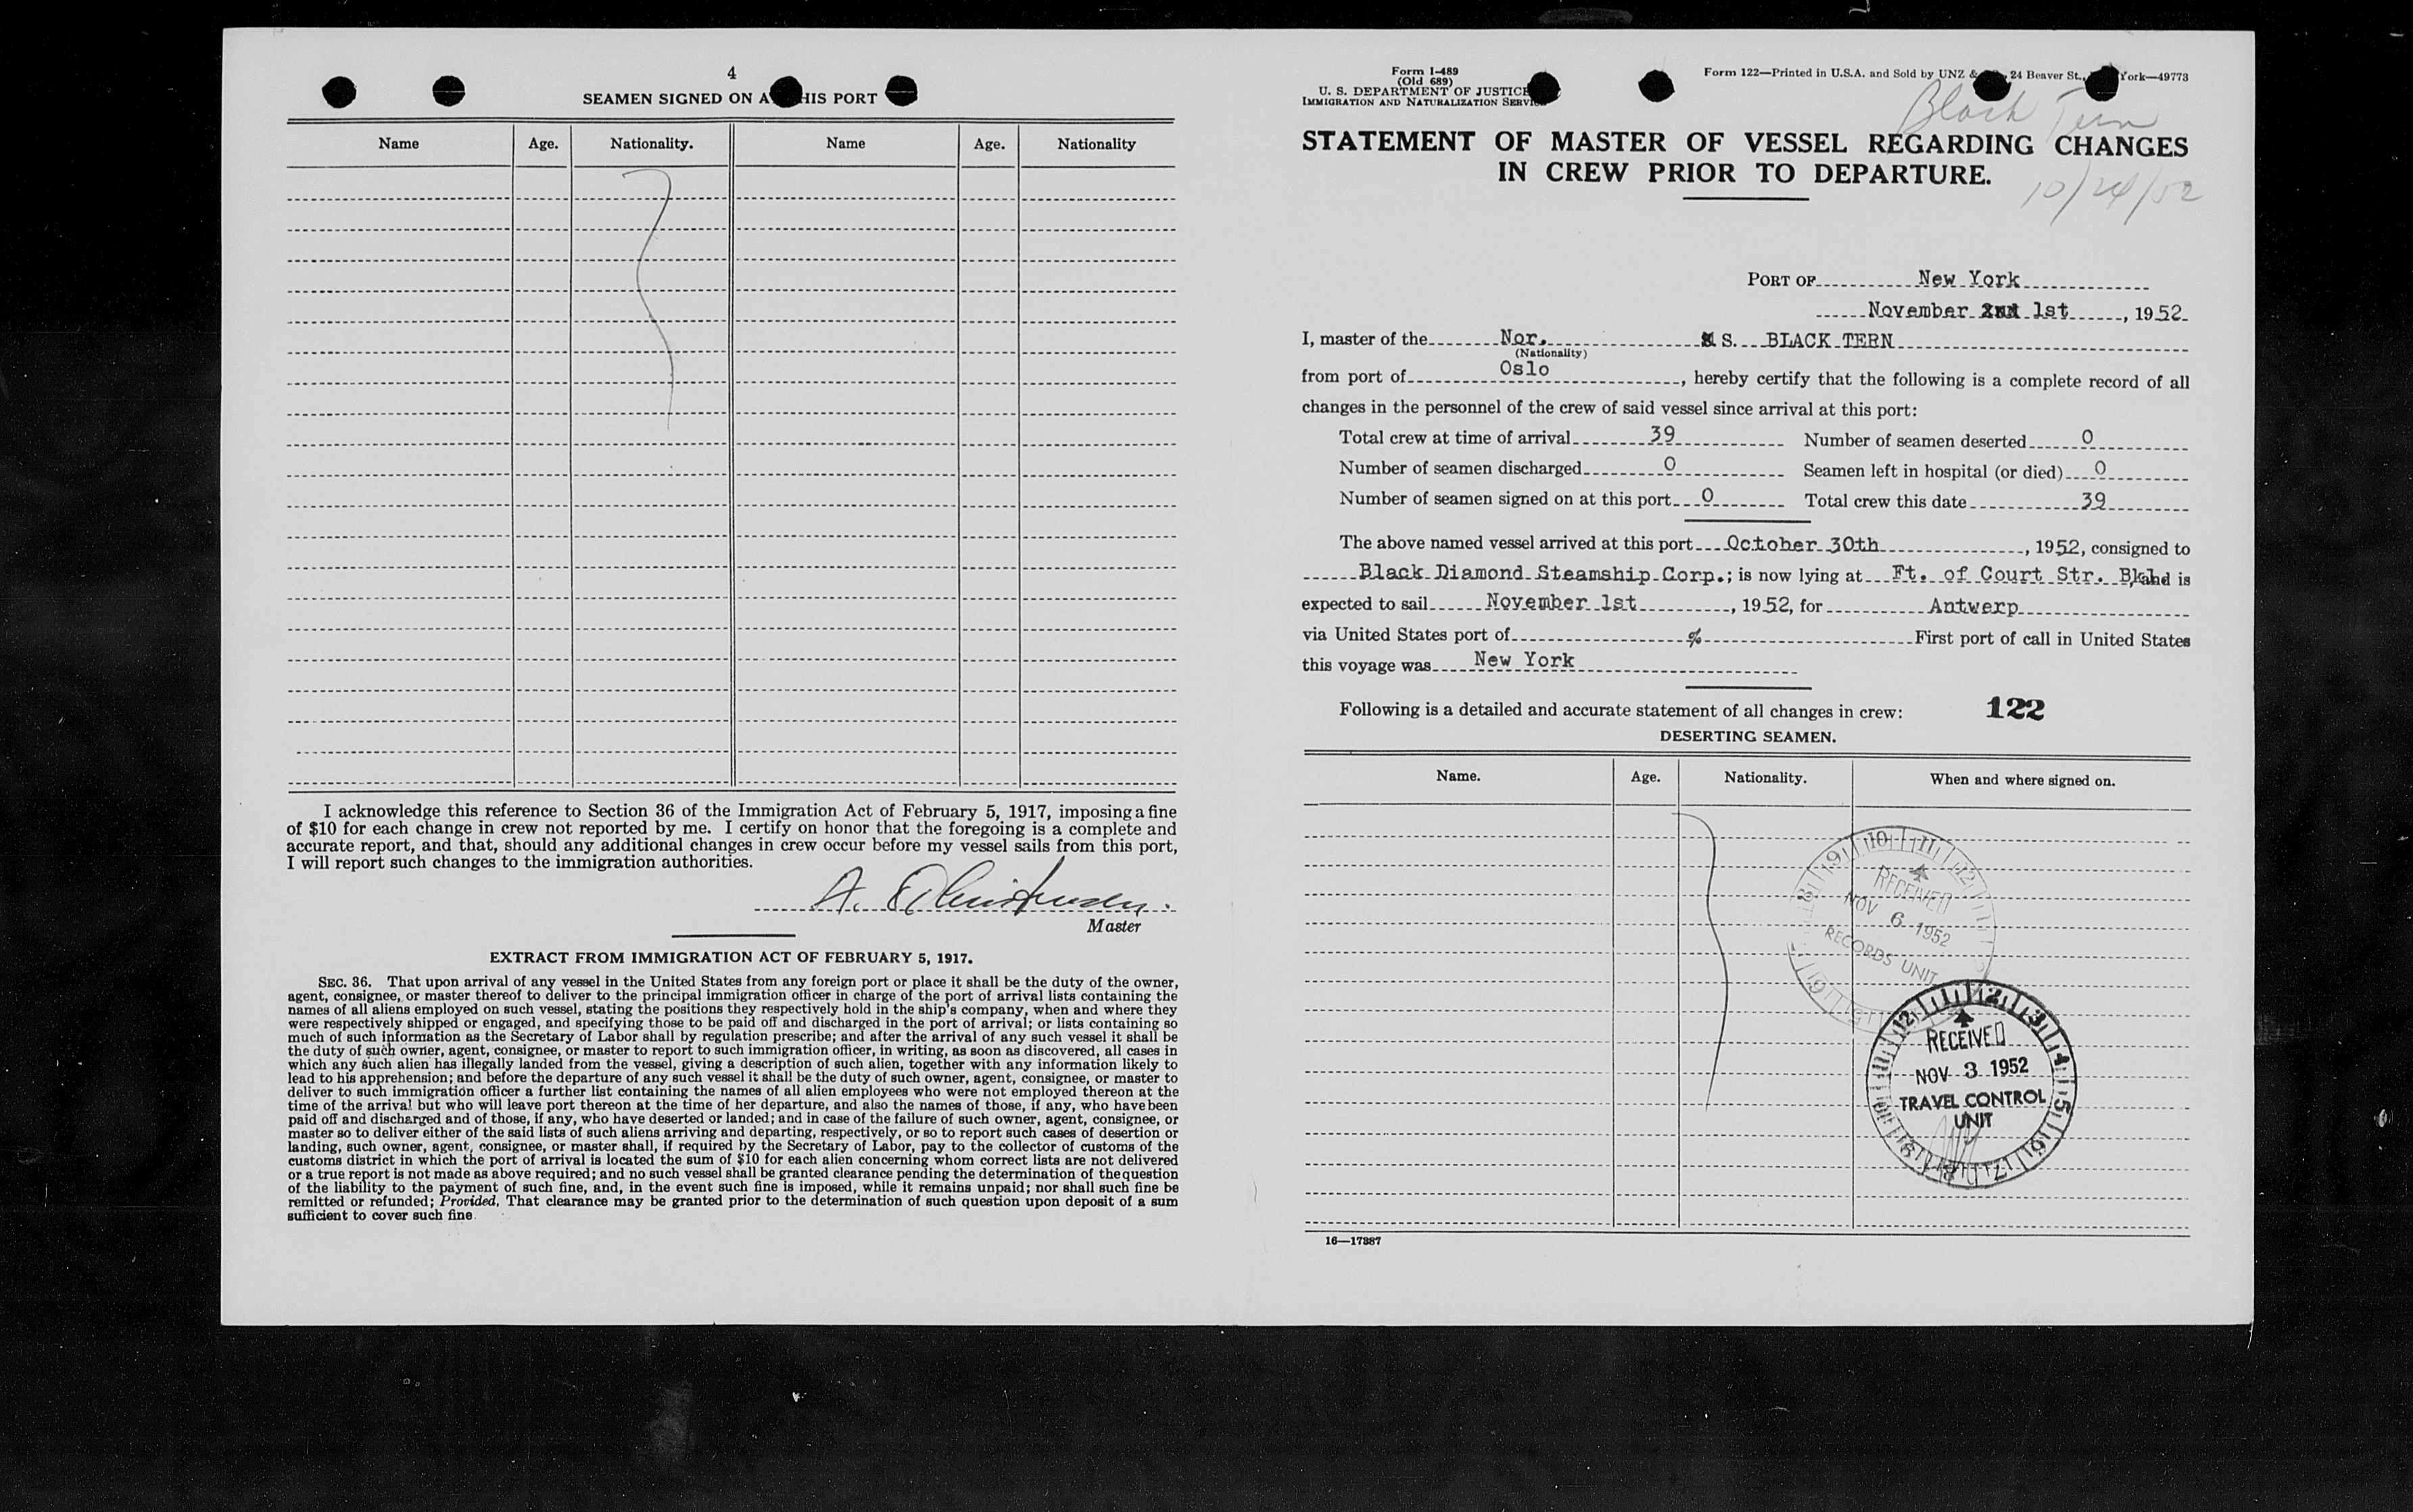 4
SEAMEN SIGNED ON A HIS PORT
Name Age. Nationality. Name Age. Nationality
I acknowledge this reference to Section 36 of the Immigration Act of February 5, 1917, imposing a fine
of $10 for each change in crew not reported by me. I certify on honor that the foregoing is a complete and
accurate report, and that, should any additional changes in crew occur before my vessel sails from this port,
I will report such changes to the immigration authorities.
A. Christensen.
Master
EXTRACT FROM IMMIGRATION ACT OF FEBRUARY 5, 1917.
SEC. 36. That upon arrival of any vessel in the United States from any foreign port or place it shall be the duty of the owner,
agent, consignee, or master thereof to deliver to the principal immigration officer in charge of the port of arrival lists containing the
names of all aliens employed on such vessel, stating the positions they respectively hold in the ship's company, when and where they
were respectively shipped or engaged, and specifying those to be paid off and discharged in the port of arrival; or lists containing so
much of such information as the Secretary of Labor shall by regulation prescribe; and after the arrival of any such vessel it shall be
the duty of such owner, agent, consignee, or master to report to such immigration officer, in writing, as soon as discovered, all cases in
which any such alien has illegally landed from the vessel, giving a description of such alien, together with any information likely to
lead to his apprehension; and before the departure of any such vessel it shall be the duty of such owner, agent, consignee, or master to
deliver to such immigration officer a further list containing the names of all alien employees who were not employed thereon at the
time of the arrival but who will leave port thereon at the time of her departure, and also the names of those, if any, who have been
paid off and discharged and of those, if any, who have deserted or landed; and in case of the failure of such owner, agent, consignee, or
master so to deliver either of the said lists of such aliens arriving and departing, respectively, or so to report such cases of desertion or
landing, such owner, agent, consignee, or master shall, if required by the Secretary of Labor, pay to the collector of customs of the
customs district in which the port of arrival is located the sum of $10 for each alien concerning whom correct lists are not delivered
or a true report is not made as above required; and no such vessel shall be granted clearance pending the determination of the question
of the liability to the payment of such fine, and, in the event such fine is imposed, while it remains unpaid; nor shall such fine be
remitted or refunded; Provided, That clearance may be granted prior to the determination of such question upon deposit of a sum
sufficient to cover such fine.
Form I-489
(Old 689)
U. S. DEPARTMENT OF JUSTICE
IMMIGRATION AND NATURALIZATION SERVICE
Form 122—Printed in U.S.A. and Sold by UNZ & 24 Beaver St., York—49773
Black Tern
STATEMENT OF MASTER OF VESSEL REGARDING CHANGES
IN CREW PRIOR TO DEPARTURE.
10/24/52
PORT OF New York
November 1st, 1952
I, master of the Nor. S. BLACK TERN
(Nationality)
from port of Oslo, hereby certify that the following is a complete record of all
changes in the personnel of the crew of said vessel since arrival at this port:
Total crew at time of arrival 39 Number of seamen deserted 0
Number of seamen discharged 0 Seamen left in hospital (or died) 0
Number of seamen signed on at this port 0 Total crew this date 39
The above named vessel arrived at this port October 30th, 1952, consigned to
Black Diamond Steamship Corp.; is now lying at Ft. of Court Str. Bkl and is
expected to sail November 1st, 1952, for Antwerp
via United States port of % First port of call in United States
this voyage was New York
Following is a detailed and accurate statement of all changes in crew: 122
DESERTING SEAMEN.
Name. Age. Nationality. When and where signed on.
RECEIVED
NOV 6 1952
RECORDS UNIT
RECEIVED
NOV 3 1952
TRAVEL CONTROL
UNIT
16—17887